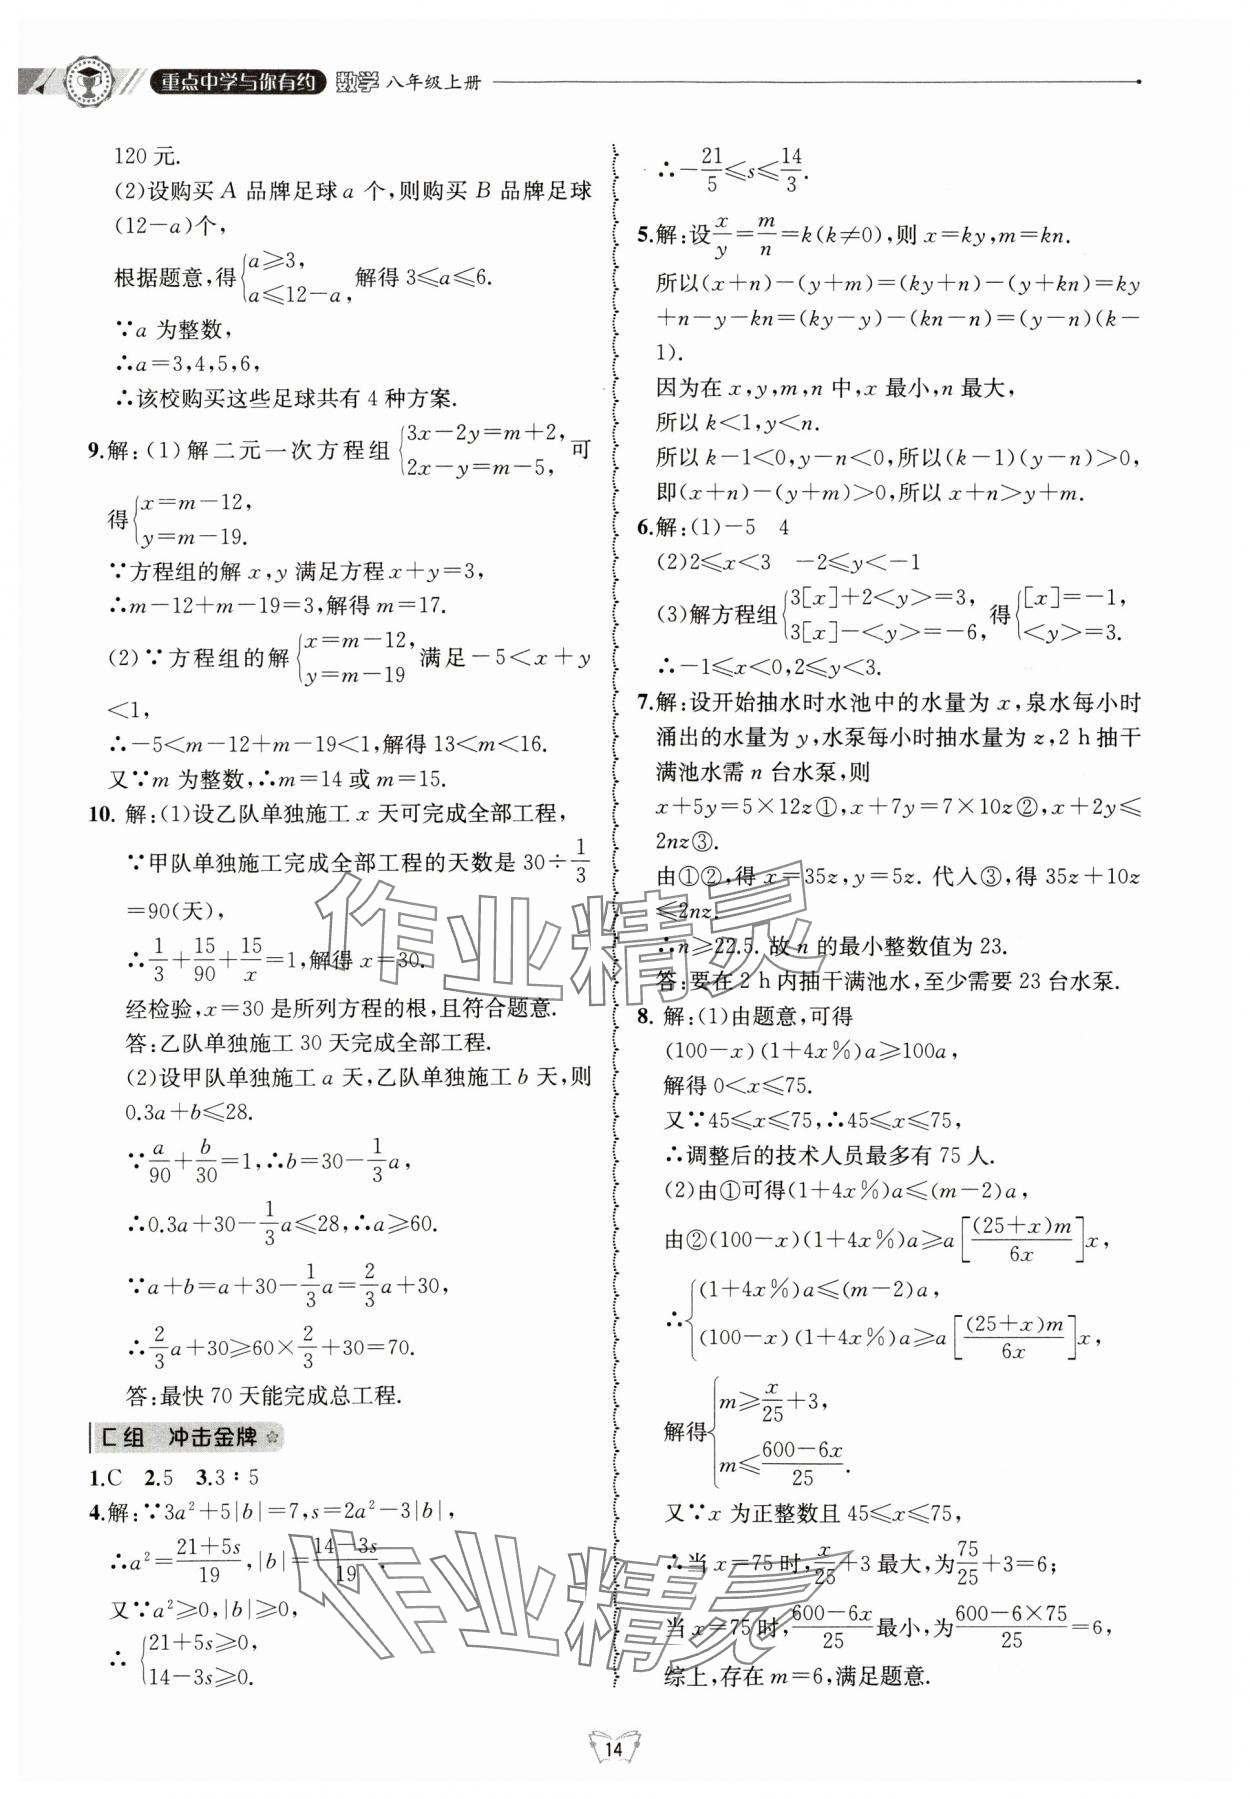 重点中学与你有约 数学 八年级上册
120 元.
(2)设购买 A 品牌足球 a 个,则购买 B 品牌足球
(12－a)个,
根据题意,得{a⩾3, a⩽12－a, 解得 3⩽a⩽6.
∵a 为整数,
∴a＝3,4,5,6,
∴该校购买这些足球共有 4 种方案.
9.解:(1)解二元一次方程组{3x－2y＝m＋2, 2x－y＝m－5, 可
得{x＝m－12, y＝m－19.
∵方程组的解 x,y 满足方程 x＋y＝3,
∴m－12＋m－19＝3,解得 m＝17.
(2)∵方程组的解{x＝m－12, y＝m－19 满足－5＜x＋y
＜1,
∴－5＜m－12＋m－19＜1,解得 13＜m＜16.
又∵m 为整数,∴m＝14 或 m＝15.
10. 解:(1)设乙队单独施工 x 天可完成全部工程,
∵甲队单独施工完成全部工程的天数是 30÷1/3
＝90(天),
∴1/3＋15/90＋15/x＝1,解得 x＝30.
经检验,x＝30 是所列方程的根,且符合题意.
答:乙队单独施工 30 天完成全部工程.
(2)设甲队单独施工 a 天,乙队单独施工 b 天,则
0.3a＋b⩽28.
∵a/90＋b/30＝1,∴b＝30－1/3a,
∴0.3a＋30－1/3a⩽28,∴a⩾60.
∵a＋b＝a＋30－1/3a＝2/3a＋30,
∴2/3a＋30⩾60×2/3＋30＝70.
答:最快 70 天能完成总工程.
C组 冲击金牌
1.C 2.5 3.3∶5
4.解:∵3a²＋5|b|＝7,s＝2a²－3|b|,
∴a²＝(21＋5s)/19,|b|＝(14－3s)/19.
又∵a²⩾0,|b|⩾0,
∴{21＋5s⩾0, 14－3s⩾0.
∴－21/5⩽s⩽14/3.
5.解:设x/y＝m/n＝k(k≠0),则 x＝ky,m＝kn.
所以(x＋n)－(y＋m)＝(ky＋n)－(y＋kn)＝ky
＋n－y－kn＝(ky－y)－(kn－n)＝(y－n)(k－
1).
因为在 x,y,m,n 中,x 最小,n 最大,
所以 k＜1,y＜n.
所以 k－1＜0,y－n＜0,所以(k－1)(y－n)＞0,
即(x＋n)－(y＋m)＞0,所以 x＋n＞y＋m.
6.解:(1)－5 4
(2)2⩽x＜3 －2⩽y＜－1
(3)解方程组{3[x]＋2<y>＝3, 3[x]－<y>＝－6, 得{[x]＝－1, <y>＝3.
∴－1⩽x＜0,2⩽y＜3.
7.解:设开始抽水时水池中的水量为 x,泉水每小时
涌出的水量为 y,水泵每小时抽水量为 z,2 h 抽干
满池水需 n 台水泵,则
x＋5y＝5×12z①,x＋7y＝7×10z②,x＋2y⩽
2nz③.
由①②,得 x＝35z,y＝5z. 代入③,得 35z＋10z
⩽2nz.
∴n⩾22.5. 故 n 的最小整数值为 23.
答:要在 2 h 内抽干满池水,至少需要 23 台水泵.
8. 解:(1)由题意,可得
(100－x)(1＋4x%)a⩾100a,
解得 0＜x⩽75.
又∵45⩽x⩽75,∴45⩽x⩽75,
∴调整后的技术人员最多有 75 人.
(2)由①可得(1＋4x%)a⩽(m－2)a,
由②(100－x)(1＋4x%)a⩾a[(25＋x)m/6x]x,
∴{(1＋4x%)a⩽(m－2)a, (100－x)(1＋4x%)a⩾a[(25＋x)m/6x]x,
解得{m⩾x/25＋3, m⩽(600－6x)/25.
又∵x 为正整数且 45⩽x⩽75,
∴当 x＝75 时,x/25＋3 最大,为75/25＋3＝6;
当 x＝75 时,(600－6x)/25最小,为(600－6×75)/25＝6,
综上,存在 m＝6,满足题意.
作业精灵
作业精灵
14